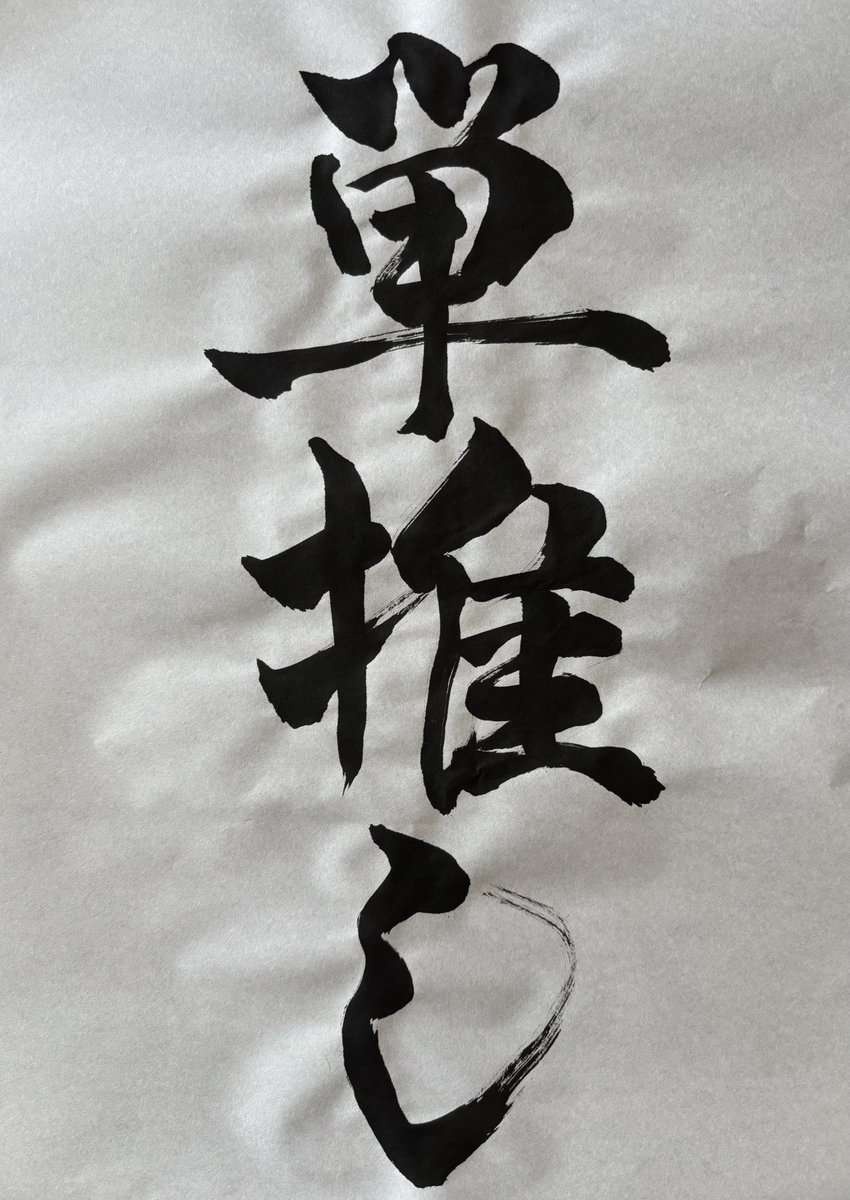 単推し